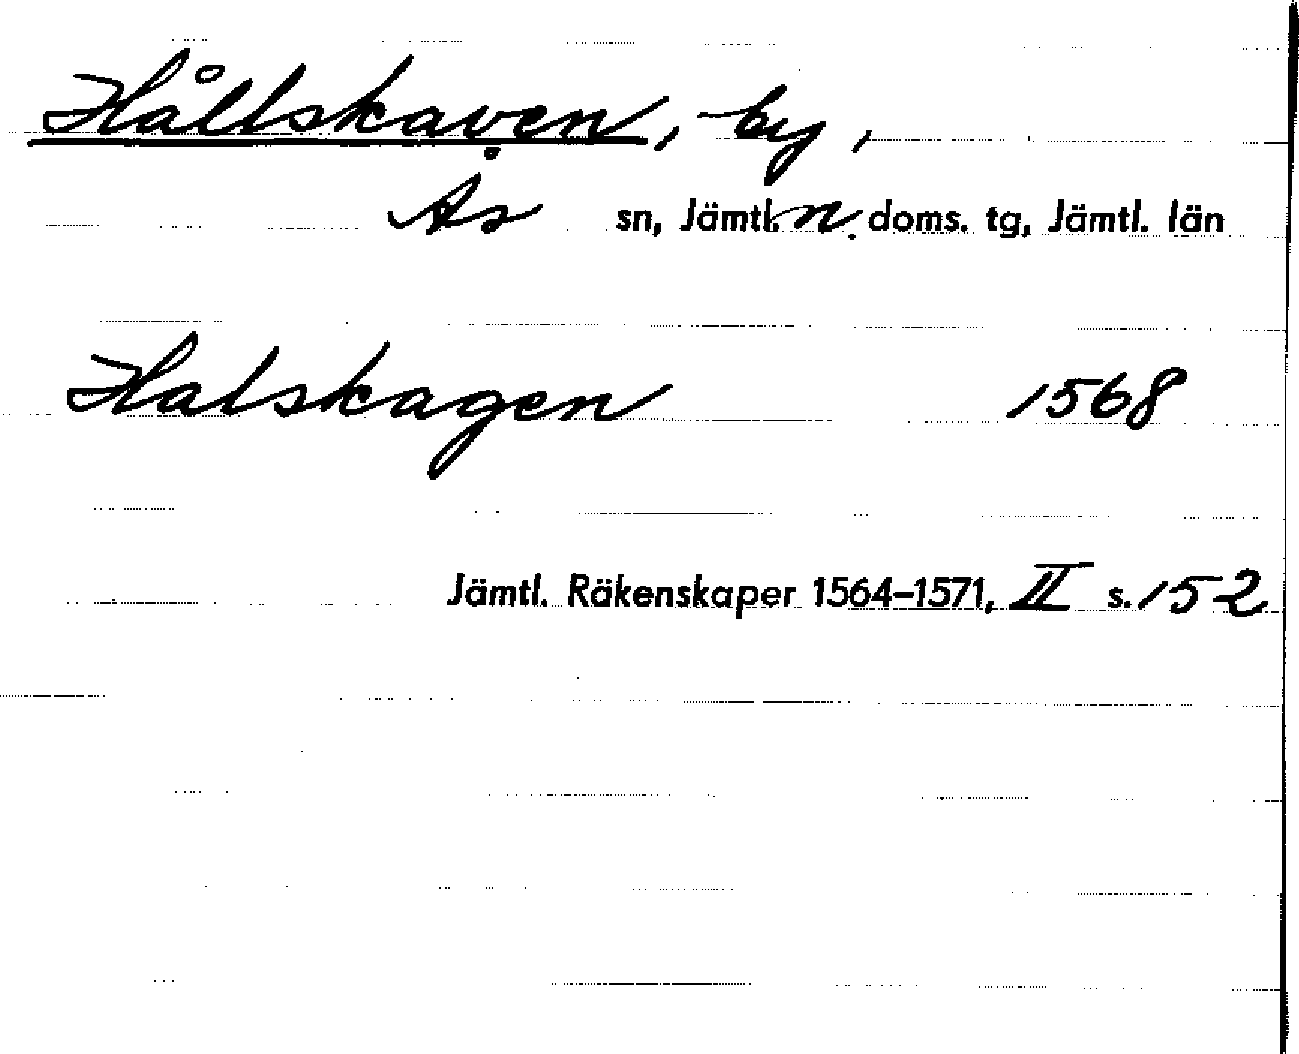 Hållskaven, by,
Ås sn, Jämtl. n. doms. tg, Jämtl. län
Halskagen 1568
Jämtl. Räkenskaper 1564–1571, II s. 152